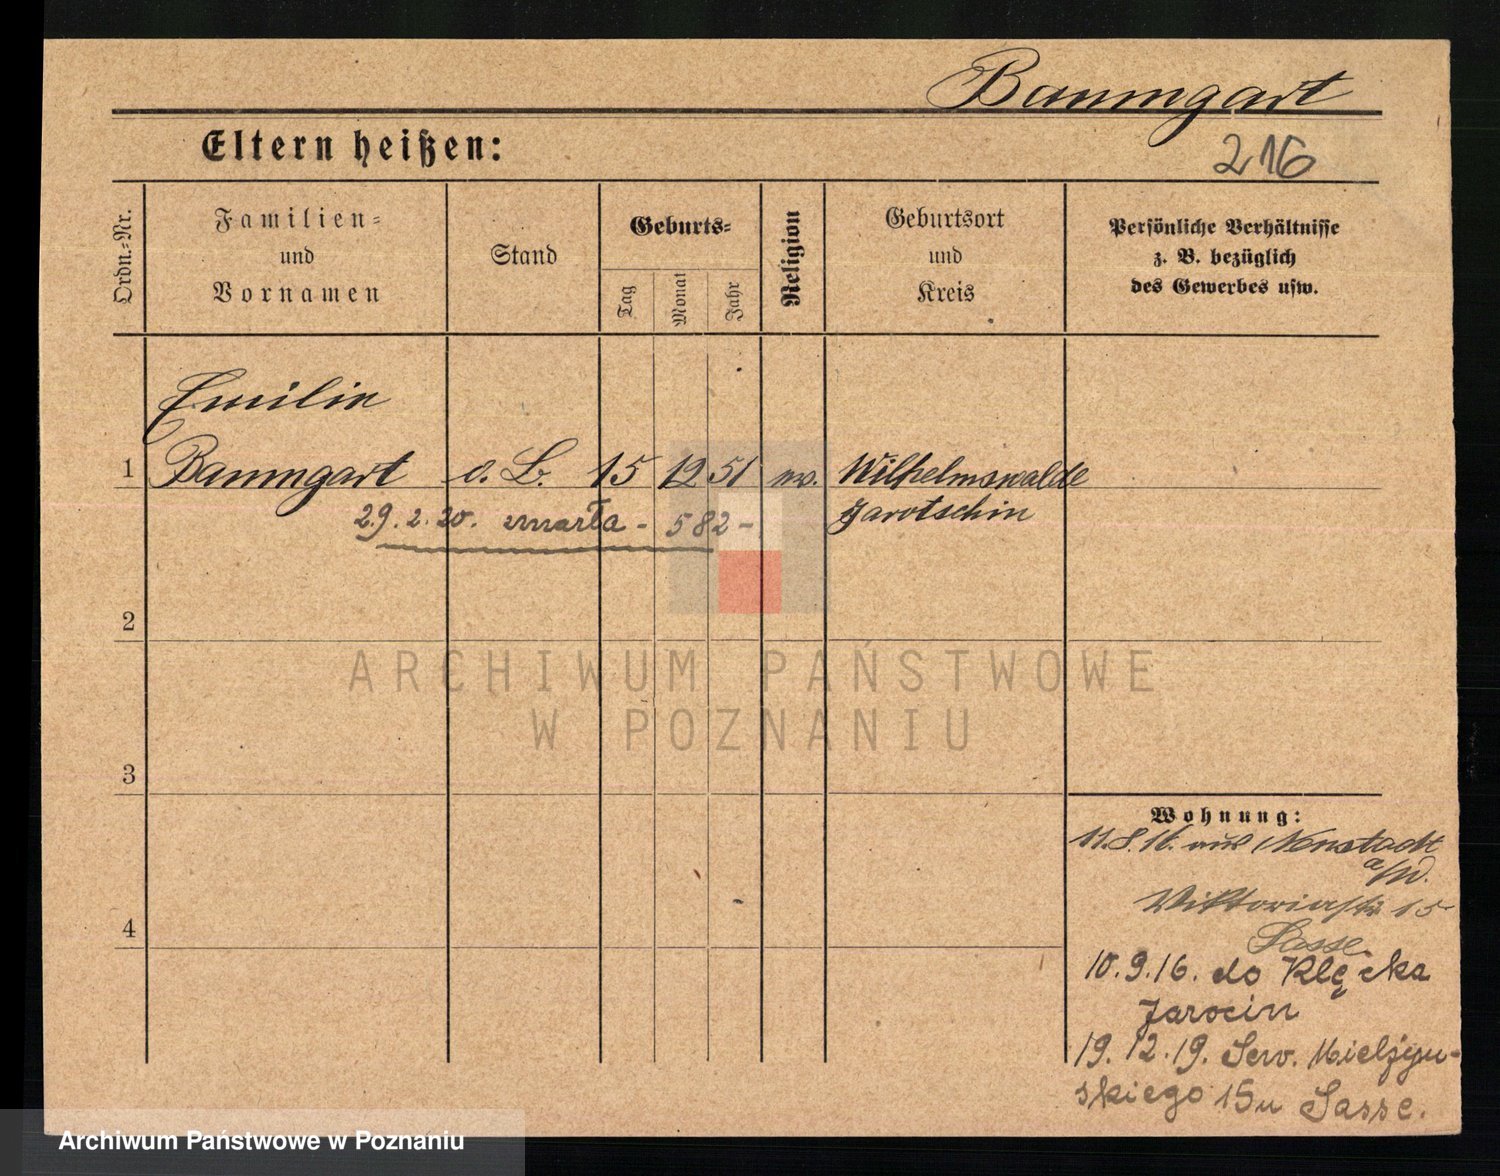 Baumgart
Eltern heißen:
216
Ordn.=Nr.
Familien=
und
Vornamen
Stand
Geburts=
Tag
Monat
Jahr
Religion
Geburtsort
und
Kreis
Persönliche Verhältnisse
z. B. bezüglich
des Gewerbes usw.
Emilie
1 Baumgart o. B. 15 12 51 ev. Wilhelmswalde
Jarotschin
29. 2. 20. zmarła - 582 -
2
ARCHIWUM PAŃSTWOWE
W POZNANIU
3
4
Wohnung:
11.8.16. aus Neustadt
a/W.
Viktoriastr 15
Sasse
10.9.16. do Klęcka
Jarocin
19.12.19. Sew. Mielżyń-
skiego 15 u Sasse.
Archiwum Państwowe w Poznaniu